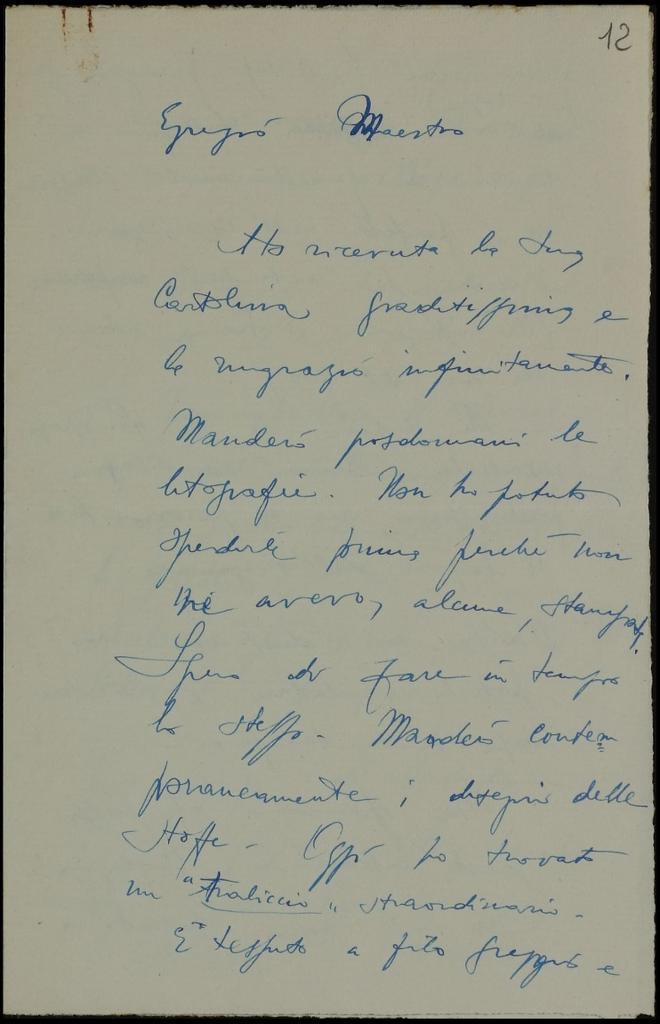 12
Egregio Maestro
Ho ricevuta la Sua
Cartolina graditissima e
la ringrazio infinitamente.
Manderò posdomani le
litografie. Non ho potuto
spedirle prima perché non
ne avevo, alcune, stampate.
Spero di fare in tempo
lo stesso. Manderò contem
poraneamente i disegni delle
stoffe. Oggi ho trovato
un "traliccio" straordinario.
E' tessuto a filo greggio e